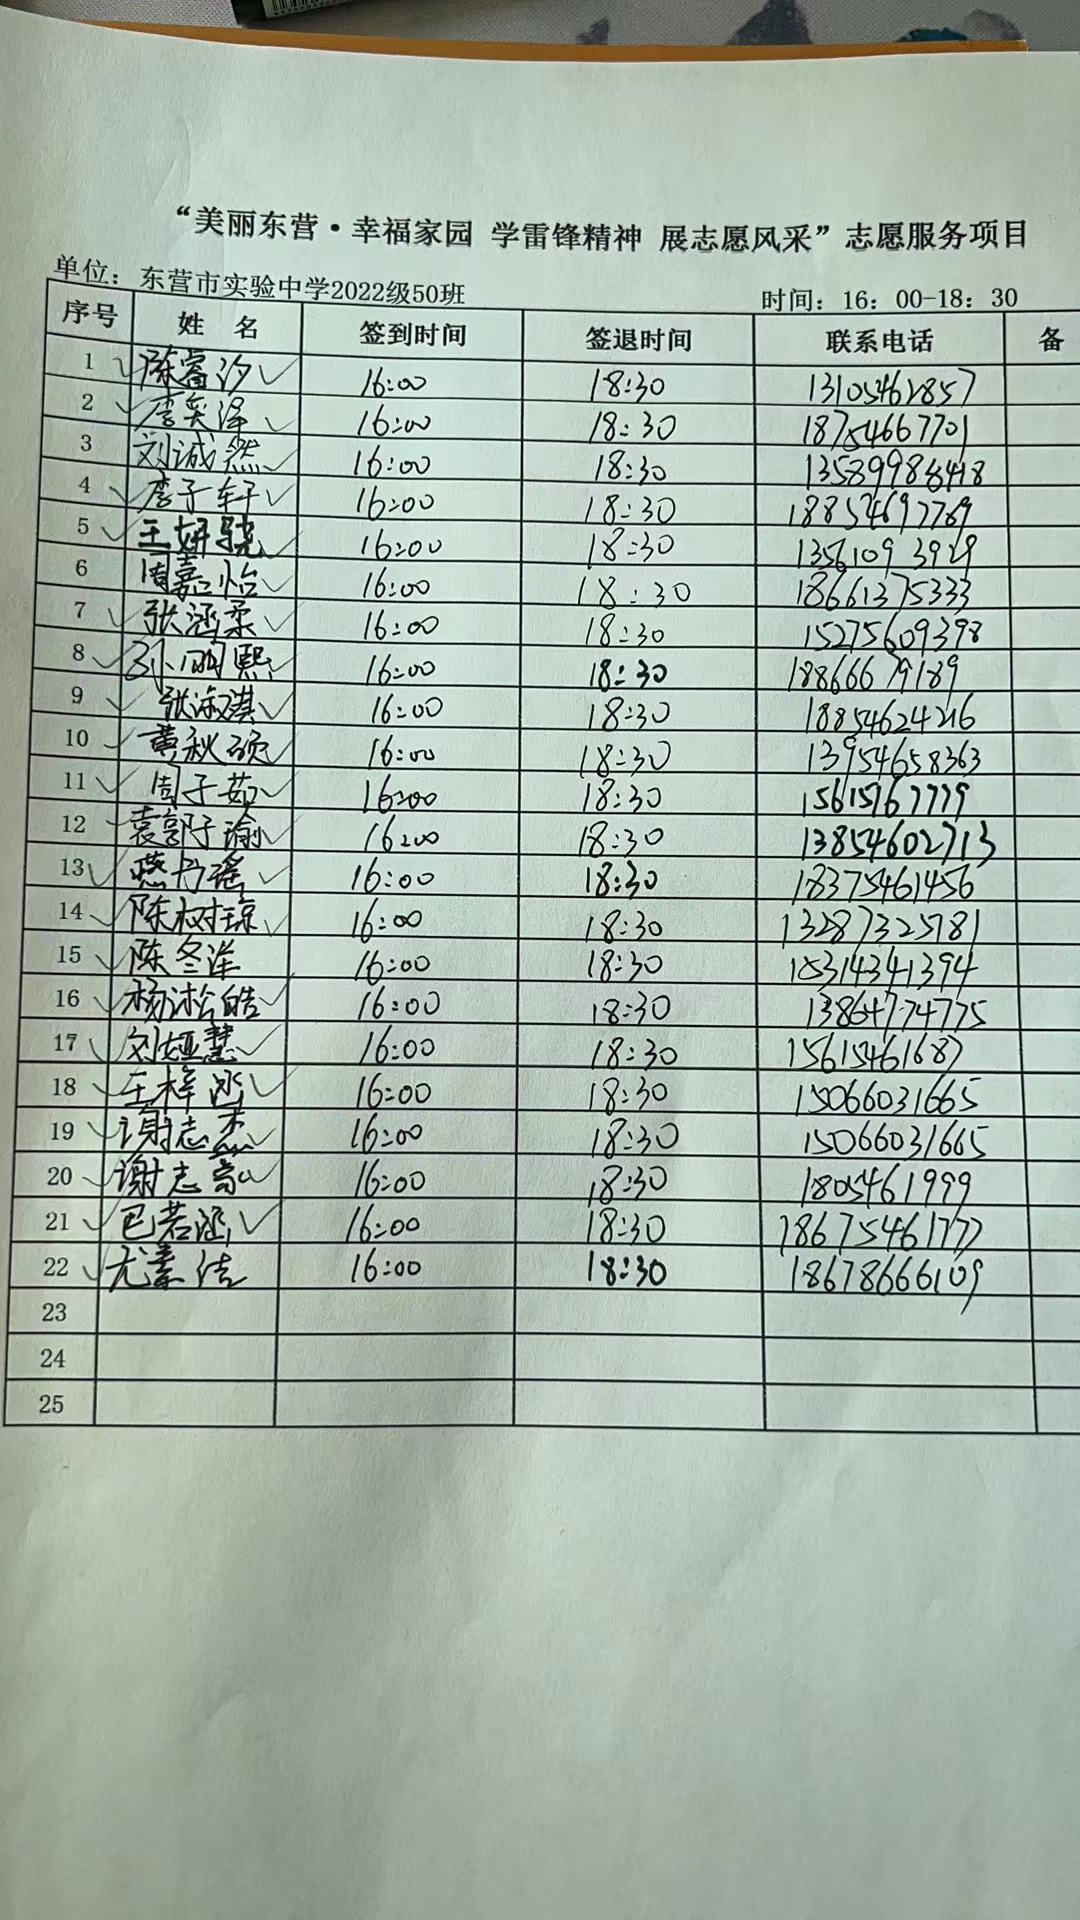 “美丽东营·幸福家园 学雷锋精神 展志愿风采”志愿服务项目
单位：东营市实验中学2022级50班 时间：16：00-18：30
序号 姓 名 签到时间 签退时间 联系电话 备
1 陈富汐 16:00 18:30 13105462857
2 李奕泽 16:00 18:30 18754667701
3 刘诚然 16:00 18:30 13589988418
4 李子轩 16:00 18:30 18854697769
5 王妍骁 16:00 18:30 13561093929
6 周嘉怡 16:00 18:30 18661375333
7 张涵柔 16:00 18:30 15275609398
8 孙明熙 16:00 18:30 18866679189
9 张淑淇 16:00 18:30 18854624216
10 黄秋硕 16:00 18:30 13954658363
11 周子茹 16:00 18:30 15615767779
12 袁郭子瑜 16:00 18:30 13854602713
13 燕丹瑶 16:00 18:30 18375461456
14 陈树琼 16:00 18:30 13287325781
15 陈冬洋 16:00 18:30 15314341394
16 杨淞皓 16:00 18:30 13864774775
17 刘娅慧 16:00 18:30 15615461687
18 王梓 16:00 18:30 15066031665
19 谢志杰 16:00 18:30 15066031665
20 谢志高 16:00 18:30 1805461999
21 巴若涵 16:00 18:30 18675461777
22 尤素洁 16:00 18:30 18678666109
23
24
25